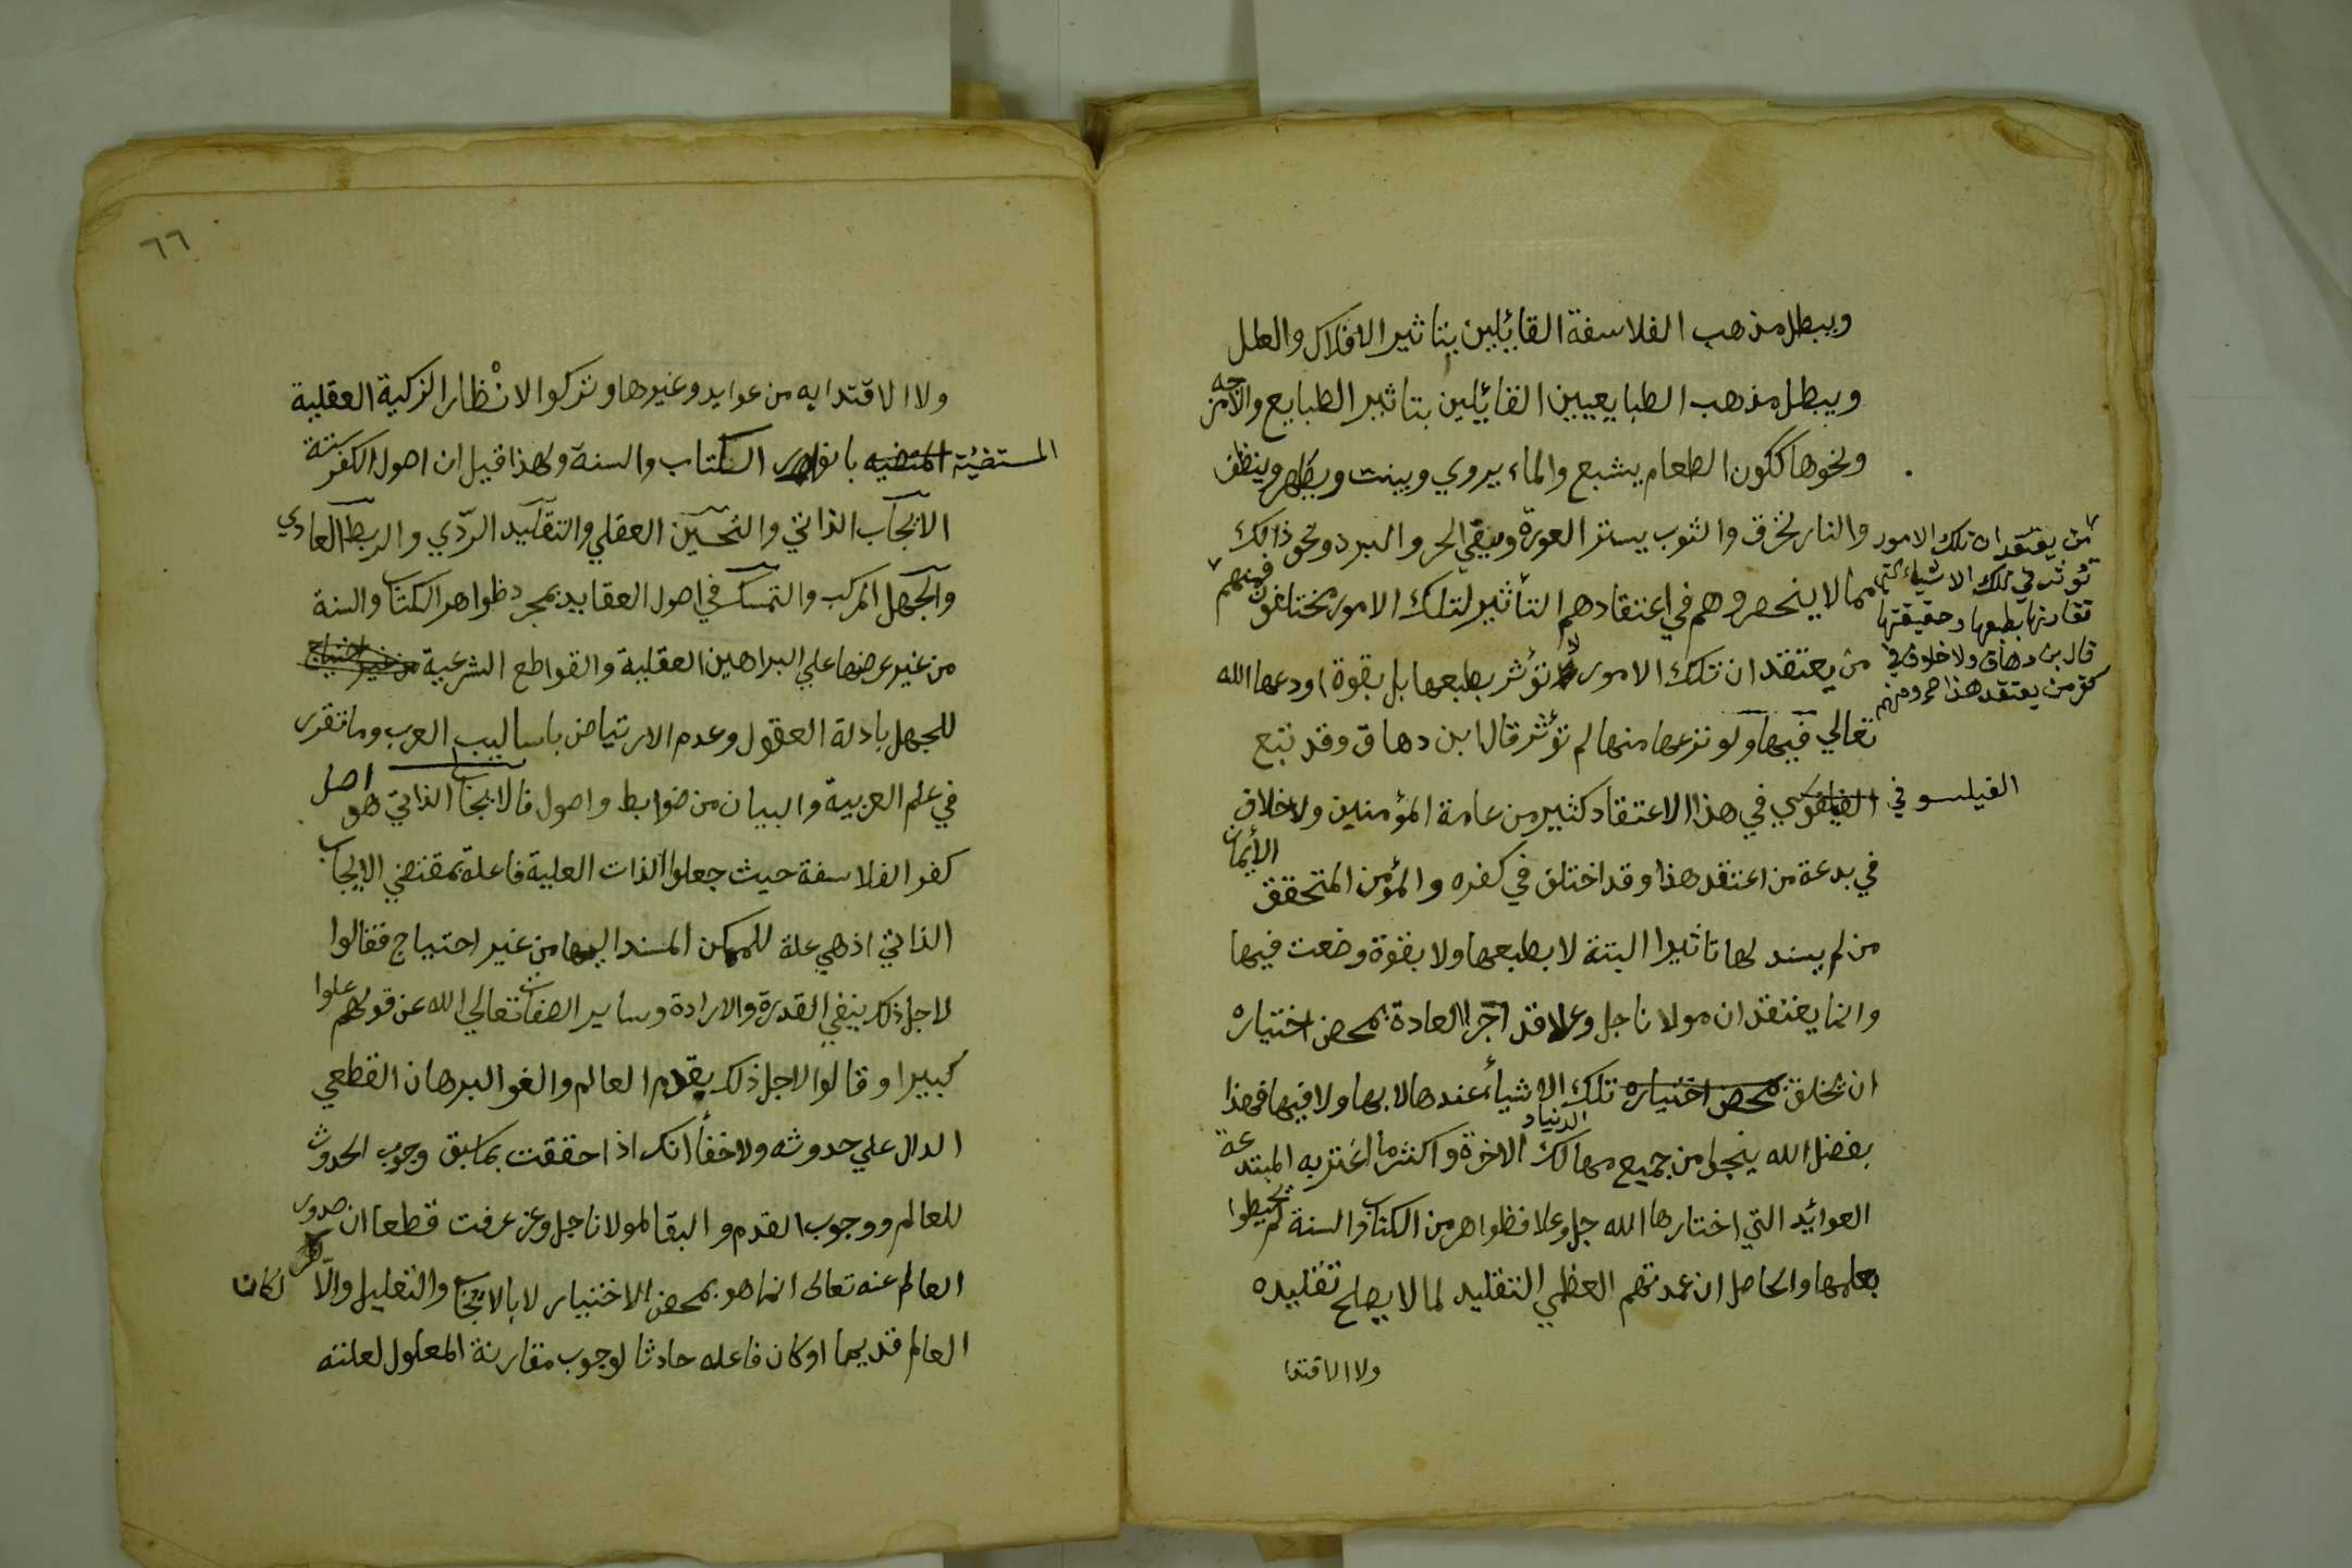 ويبطل مذهب الفلاسفة القائيلين بتاثير الافلاك والعلل
ويبطل مذهب الطبايعيين القائيلين بتاثير الطبايع والامزجه
ونحوها ككون الطعام يشبع والماء يروي وينبت ويطهر وينظف
والنار تحرق والثوب يستر العورة ويقي الحر والبرد ونحو ذالك
مما لا ينحصر وهم في اعتقادهم التأثير لتلك الامور مختلفون فمنهم
من يعتقد ان تلك الامور
تؤثر في تلك الاشياء التي
تقارنها بطبعها وحقيقتها
قال بن دهاق ولا خلاف في
كفر من يعتقد هذا صح ومنهم
من يعتقد ان تلك الامور لا تؤثر بطبعها بل بقوة اودعها الله
تعالي فيها ولو نزعها منها لم تؤثر قال ابن دهاق وقد تبع
الفيلسوفي في هذا الاعتقاد كثير من عامة المؤمنين ولا خلاف
في بدعة من اعتقد هذا وقد اختلف في كفره والمؤمن المتحقق الأيمان
من لم يسند لها تاثيرا البتة لا بطبعها ولا بقوة وضعت فيها
وانما يعتقد ان مولانا جل وعلا قد اجرا العادة بمحض اختياره
ان يخلق بمحض اختياره تلك الاشياء عندها لا بها ولا فيها فهذا
بفضل الله ينجوا من جميع مهالك الدنيا والاخرة واكثر ما اغتر به المبتدعة
العوائد التي اختارها الله جل وعلا فظواهر من الكتاب والسنة لم يحيطوا
بعلمها والحاصل ان عمدتهم العظمي التقليد لما لا يصلح تقليده
ولا الاقتدا
٦٦
ولا الاقتدا به من عوايد وغيرها وتركوا الانْظار الزكية العقلية
المستضيئة بانوار الكتاب والسنة ولهذا قيل ان اصول الكفر ستة
الايجاب الذاتي والتحسين العقلي والتقليد الردّي والربط العادي
والجهل المركب والتمسك في اصول العقايد بمجرد ظواهر الكتاب والسنة
من غير عرضها علي البراهين العقلية والقواطع الشرعية من غير احتياج
للجهل بادلة العقول وعدم الارتياض باساليب العرب وما تقرر
في علم العربية والبيان من ضوابط واصول فالايجاب الذاتي هو اصل
كفر الفلاسفة حيث جعلوا الذات العلية فاعلة بمقتضي الايجاب
الذاتي اذ هي علة للممكن المسند اليها من غير احتياج فقالوا
لاجل ذلك بنفي القدرة والارادة وساير الصفات تعالي الله عن قولهم علوا
كبيرا وقالوا لاجل ذلك بقدم العالم والغو البرهان القطعي
الدال علي حدوثه ولا خفأ انك اذا حققت بما سبق وجوب الحدوث
للعالم ووجوب القدم والبقا لمولانا جل وعز عرفت قطعا ان صدور
العالم عنه تعالى انما هو بمحض الاختيار لا بالايجاب والتعليل والّا لكان
العالم قديما او كان فاعله حادثا لوجوب مقارنة المعلول لعلته